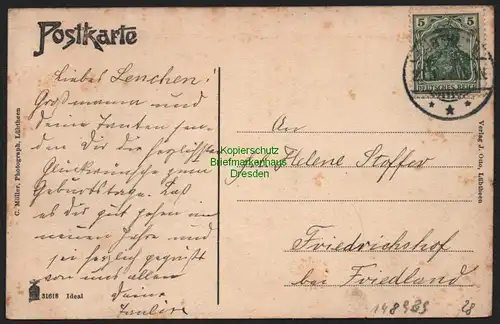 Postkarte
Liebes Lenchen!
Großmama und
Deine Tanten sen-
den Dir die herzlichsten
Glückwünsche zum
Geburtstage. Laß
es Dir gut gehen im
neuen Jahre und
sei herzlich gegrüßt
von uns allen
Deine
Pauline
An
Helene Stoffer
Friedrichshof
bei Friedland
5
DEUTSCHES REICH
C. Müller, Photograph, Lübtheen
Verlag J. Otto, Lübtheen
31618 Ideal
Kopierschutz
Briefmarkenhaus
Dresden
28